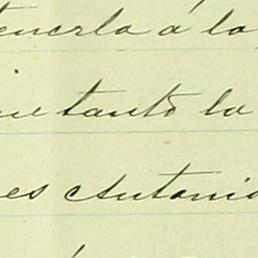 tenerla á la
que tanto la
es Antonio